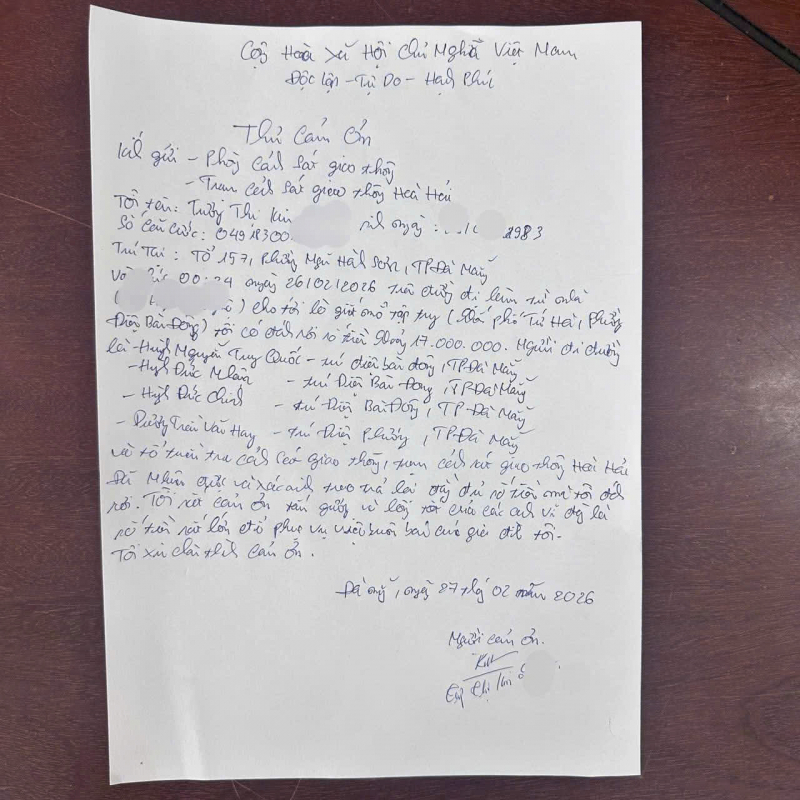 Cộng Hoà Xã Hội Chủ Nghĩa Việt Nam
Độc lập - Tự Do - Hạnh Phúc
Thư Cảm Ơn
Kính gửi - Phòng Cảnh sát giao thông
- Trạm Cảnh sát giao thông Hoà Hải
Tôi tên: Trương Thị Kim sinh ngày: 1983
Số Căn Cước: 0491830
Trú Tại: Tổ 157, phường Ngũ Hành Sơn, TP Đà Nẵng
Vào 00:24 ngày 26/02/2026 trên đường đi làm từ nhà
( ) cho tới lò giết mổ tập trung (Khối phố Tứ Hà, Phường
Điện Bàn Đông) tôi có đánh rơi số tiền khoảng 17.000.000. Người đi đường
là - Huỳnh Nguyễn Trung Quốc - trú điện bàn đông, TP Đà Nẵng
- Huỳnh Đức Nhân - trú Điện Bàn Đông, TP Đà Nẵng
- Huỳnh Đức Chinh - trú Điện Bàn Đông, TP Đà Nẵng
- Dương Trần Văn Hay - trú Điện Phương, TP Đà Nẵng
và tổ tuần tra cảnh sát giao thông, trạm cảnh sát giao thông Hoà Hải
Đã Nhặn được và xác minh trao trả lại đầy đủ số tiền mà tôi đánh
rơi. Tôi rất cảm ơn tấm gương vì lòng tốt của các anh vì đây là
số tiền rất lớn để phục vụ việc buôn bán của gia đình tôi.
Tôi xin chân thành cảm ơn.
Đà nẵng, ngày 27 tháng 02 năm 2026
Người cảm ơn.
Thị Kim